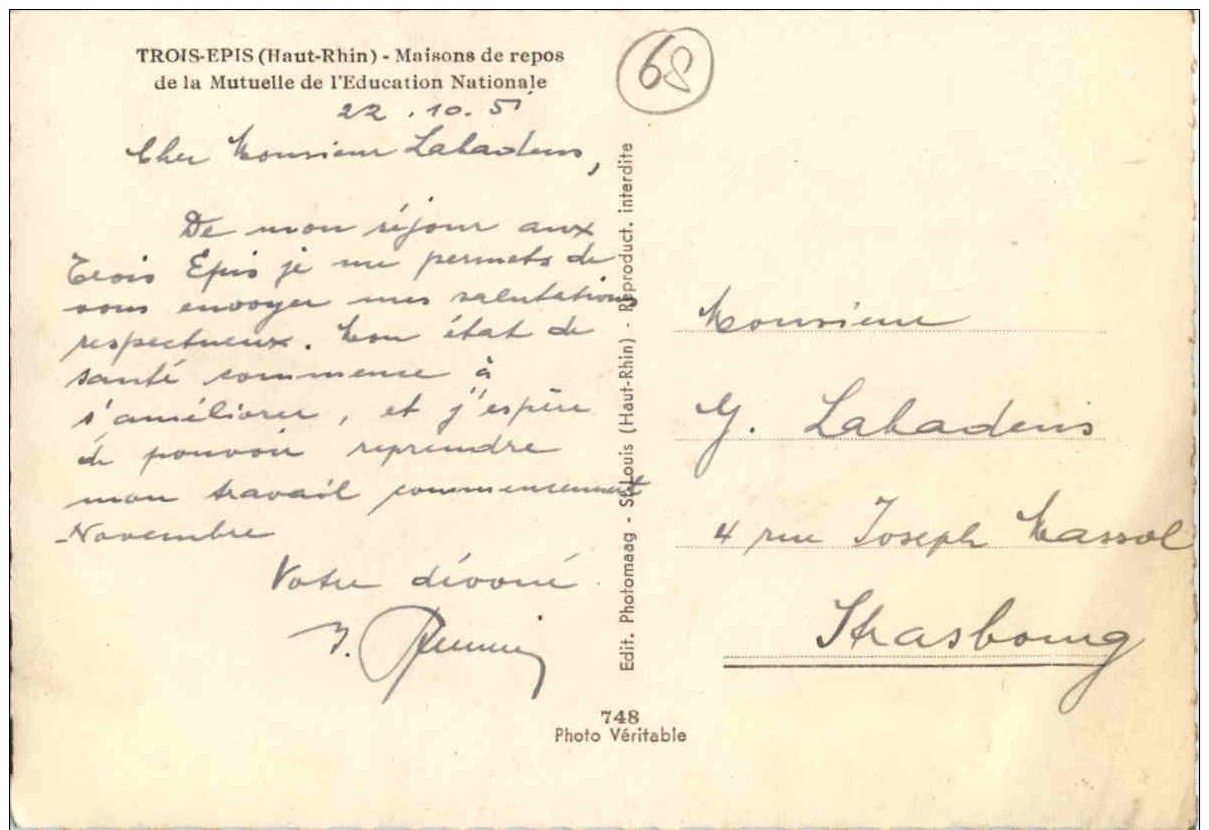 TROIS-EPIS (Haut-Rhin) - Maisons de repos
de la Mutuelle de l'Education Nationale
22.10.51
Cher Monsieur Labadens,
De mon séjour aux
Trois Épis je me permets de
vous envoyer mes salutations
respectueux. Mon état de
santé commence à
s'améliorer, et j'espère
de pouvoir reprendre
mon travail commencement
Novembre
Votre dévoué
68
Edit. Photomaag - St-Louis (Haut-Rhin) - Reproduct. interdite
Monsieur
G. Labadens
4 rue Joseph Massol
Strasbourg
748
Photo Véritable